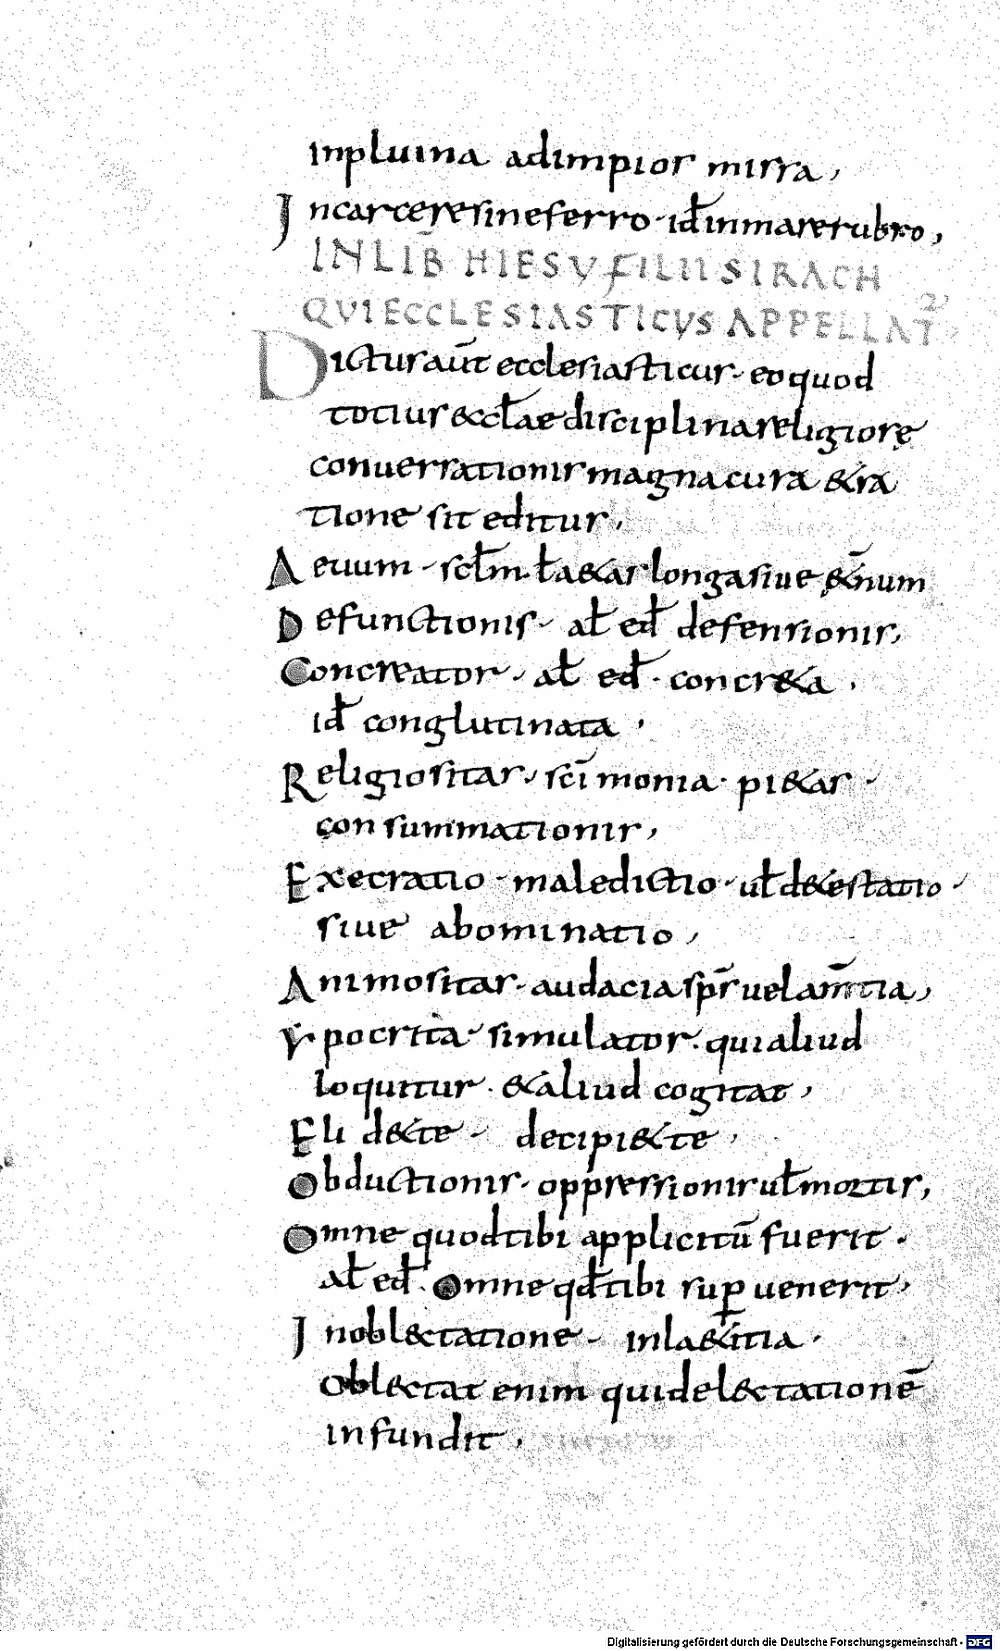 inpluuina ad impios missa,
Incarcere sine ferro · id̄ in mare rubro,
IN LIB̄ HIESV FILII SIRACH
QVI ECCLESIASTICVS APPELLAT̄
Dictus aūt ecclesiasticus · eo quod
totius eccl̄ae disciplina religiosę
conuersationis magna cura & ra
tione sit editus,
Aeuum · scl̄m. l̄ a&as longa siue &̄num
Defunctionis · al̄ ed̄ defensionis,
Concreator · al̄ ed̄ · concr&a,
id̄ conglutinata,
Religiositas · sc̄imonia · pi&as ·
consummationis,
Execratio · maledictio · ul̄ d&estatio ·
siue abominatio,
Animositas · audacia sp̄s uel am̄tia,
Ypocrita · simulator · qui aliud
loquitur · & aliud cogitat,
Elidete · decipi&e,
Obductionis · oppressionis ul̄ mortis,
Omne quod tibi applicitū fuerit ·
al̄ ed̄. Omne qd̄ tibi sup̱uenerit,
Inoblectatione · inla&itia ·
Oblectat enim qui delectationē
infundit,
Digitalisierung gefördert durch die Deutsche Forschungsgemeinschaft · DFG